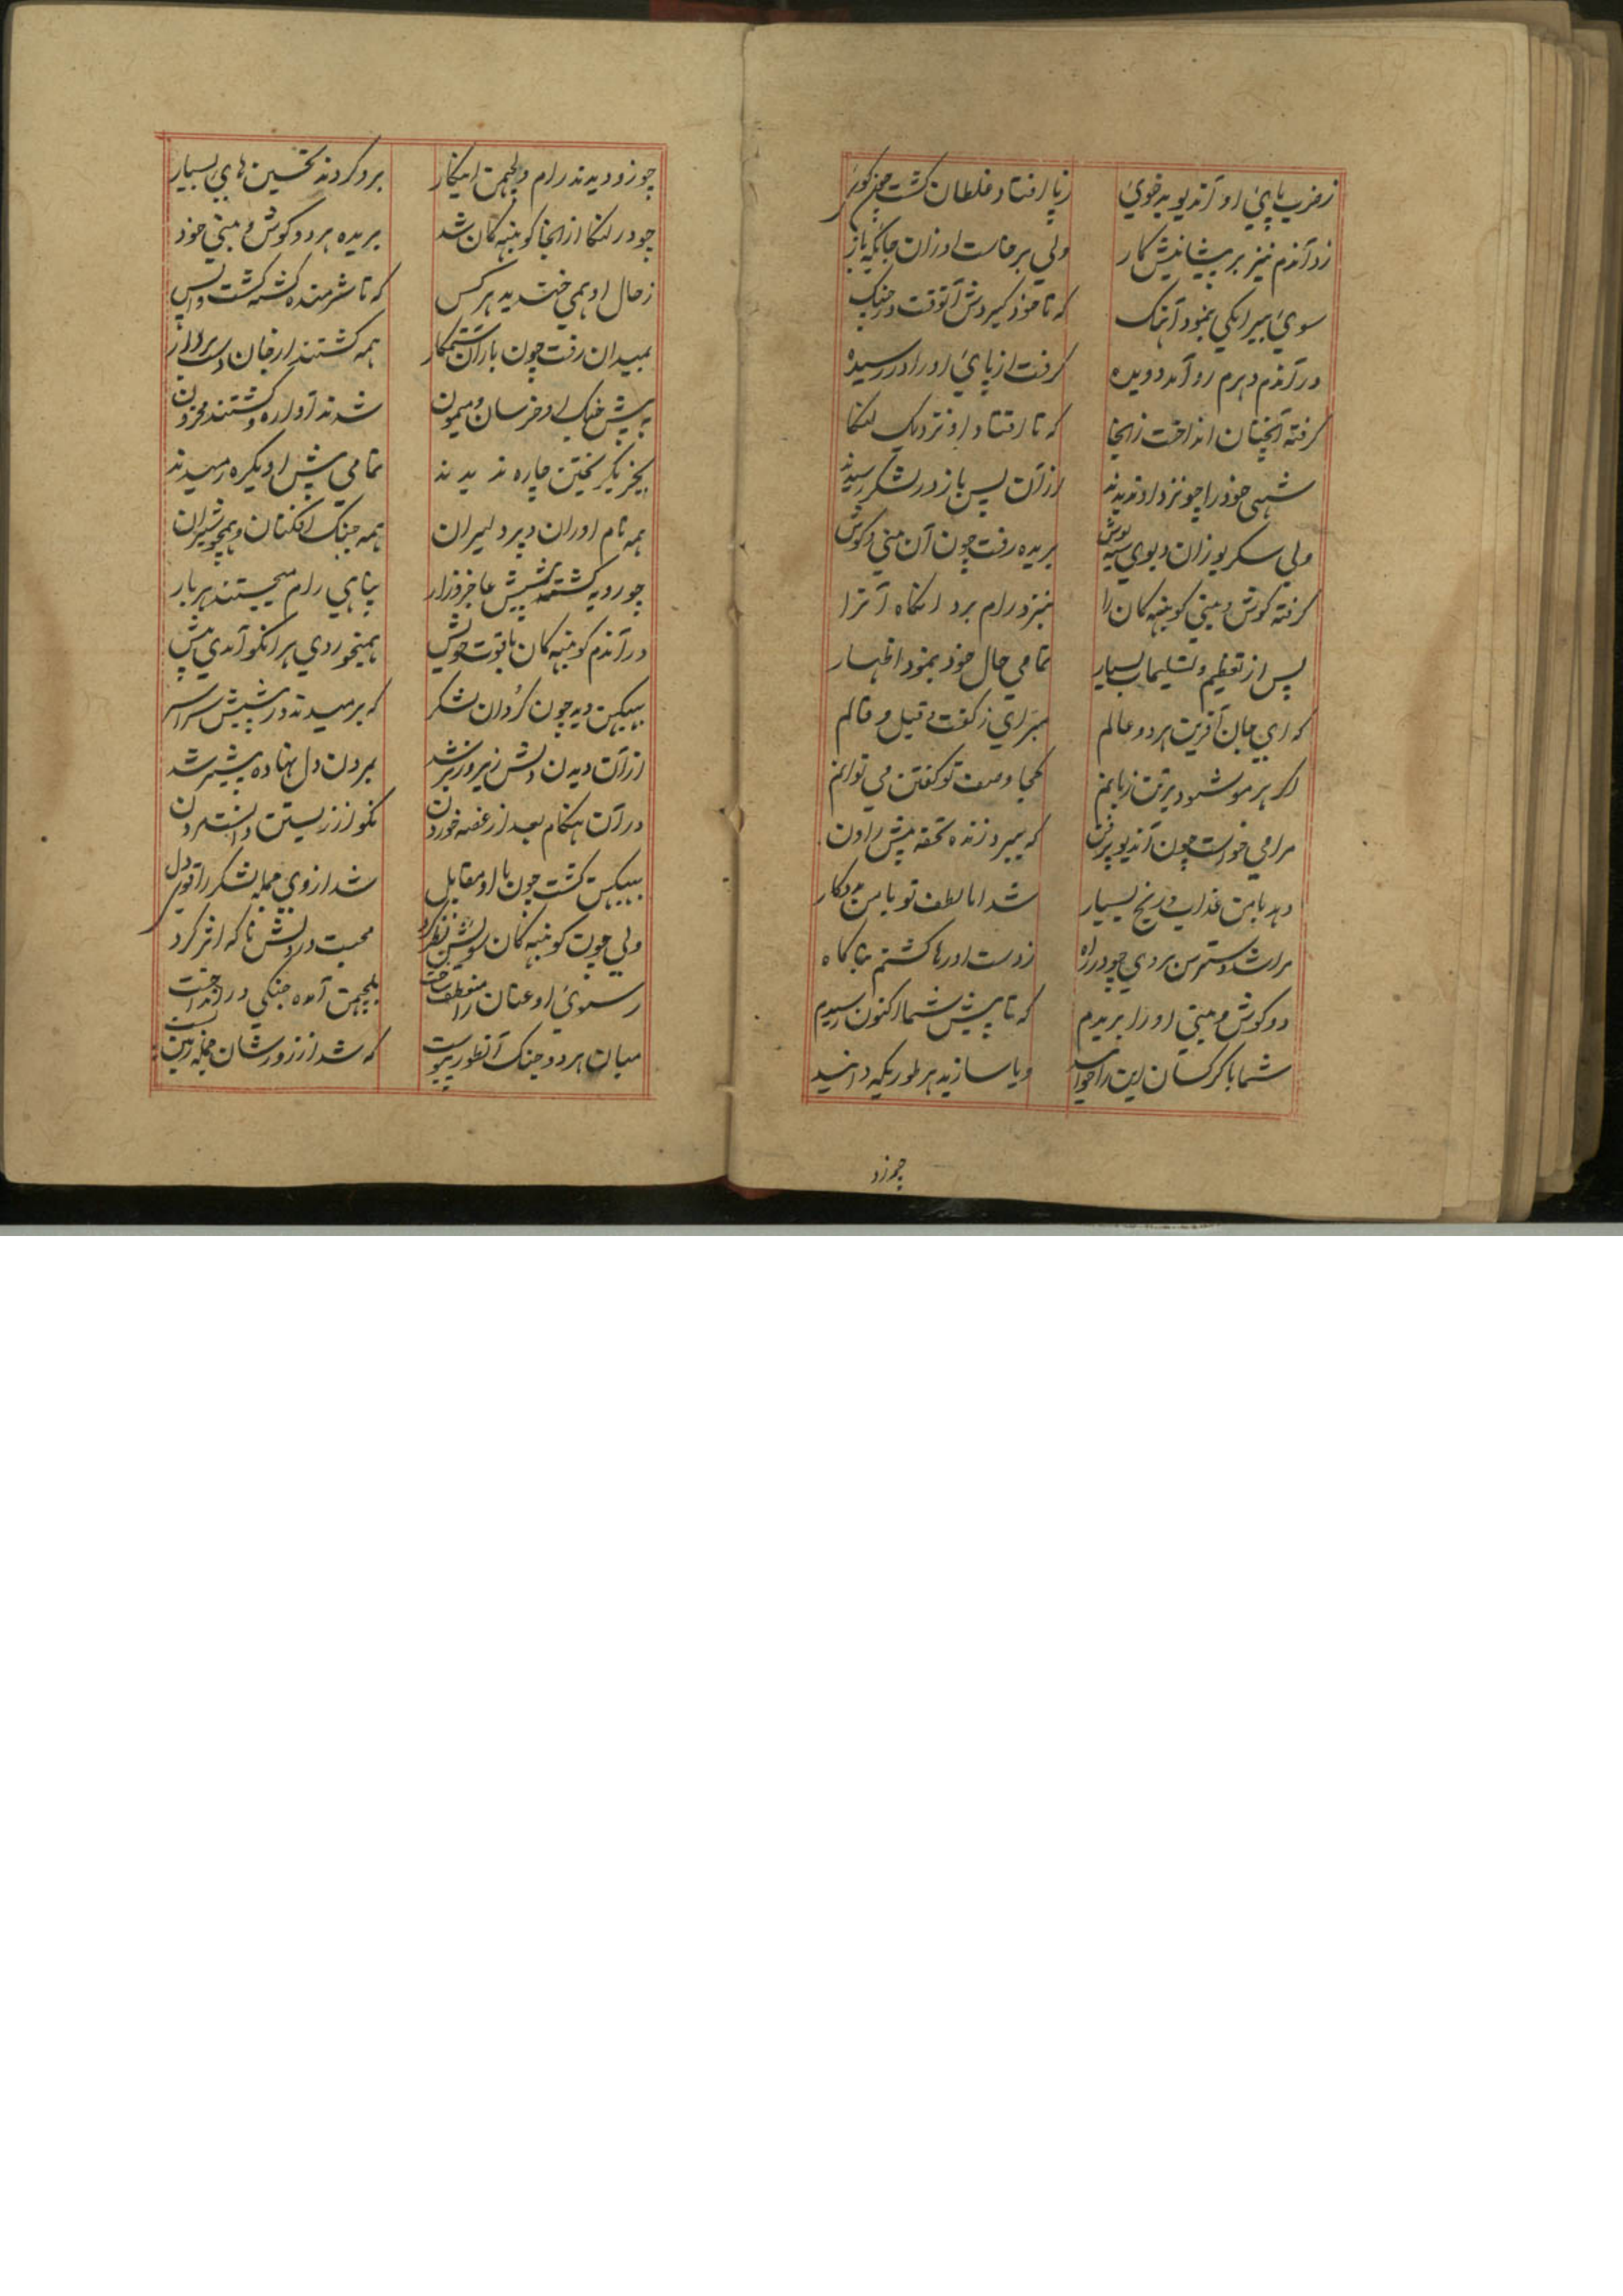 ز ضرب پای او آندیو بدخوی ز پا افتاد غلطان گشت چون گوی
زد آندم نیز بر پیشانیش کار ولی برخاست او زان جایگه باز
سوی بیرانکی بنمود آهنک که تا خود گیردش آنوقت در جنک
در آندم دهرم رو آمد دویده گرفت از پای او را در رسیده
گرفته آنچنان انداخت زانجا که تا افتاد او نزدیک لنکا
شهی خود را چو نزد او ندیدند از آن پس باز در لشکر رسیدند
ولی سکریو زان دیوی سیه بریده رفت چون آن بینی و گوش
گرفته گوش و بینی کونبهه کان را بنزد رام برد انگاه آنرا
پس از تعظیم و تسلیمات بسیار تمامی حال خود بنمود اظهار
که ای جان آفرین هر دو عالم مبرای ز گفت و قیل و قالم
اگر هر مو شود بر تن زبانم کجا وصف تو گفتن می توانم
مرا می خواست چون آندیو پرفن که بیرد زنده تحفه پیش راون
دهد با من عذاب و رنج بسیار شد اما لطف تو با من مددکار
مرا شد دسترس بردی چو در راه ز دست او رها گشتم بناگاه
دو گوش و بینی او را بریدم که تا پیش شما اکنون رسیدم
شما با کرکسان این را و یا سازید هر طوریکه دانید
چو زود
چو زو دیدند رام و لچهمن اینکار برو کردند تحسین های بسیار
چو در لنکا از انجا کونبهه کان شد بریده هر دو گوش و بینی خود
ز حال او همی خندید هر کس که تا شرمنده گشته گشت واپس
بمیدان رفت چون باران ستمکار همه گشتند از جان
به پیش جنک او خرسان و میمون شدند آواره و گشتند محزون
بجز بگریختن چاره ندیدند تمامی پیش او یکره رمیدند
همه نام اوران و پر دلیران همه جنک افکنان و همچو شیران
چو روبه گشته پیشش عاجز و زار پناهی رام میجستند هر بار
در آندم کونبهه کان با قوت خویش همیخوردی هر انکو آمدی پیش
ببیکهن دید چون گردان لشکر که برمیدند در پیشش سراسر
از آن دیدن دلش زیر و زبر شد بمردن دل نهاده پیشتر شد
در آن هنگام بعد از غصه خوردن نکو از زیستن دانست مردن
ببیکهن گشت چون با او مقابل شد از وی جمله لشکر را قوی دل
ولی چون کونبهه کان سویش نظر کرد محبت در دلش ناگه اثر کرد
ز سوی او عنان را منعطف ساخت بلچهمن آمده جنکی در انداخت
میان هر دو جنک آنطور پیوست که شد از زورشان جمله زمین پست